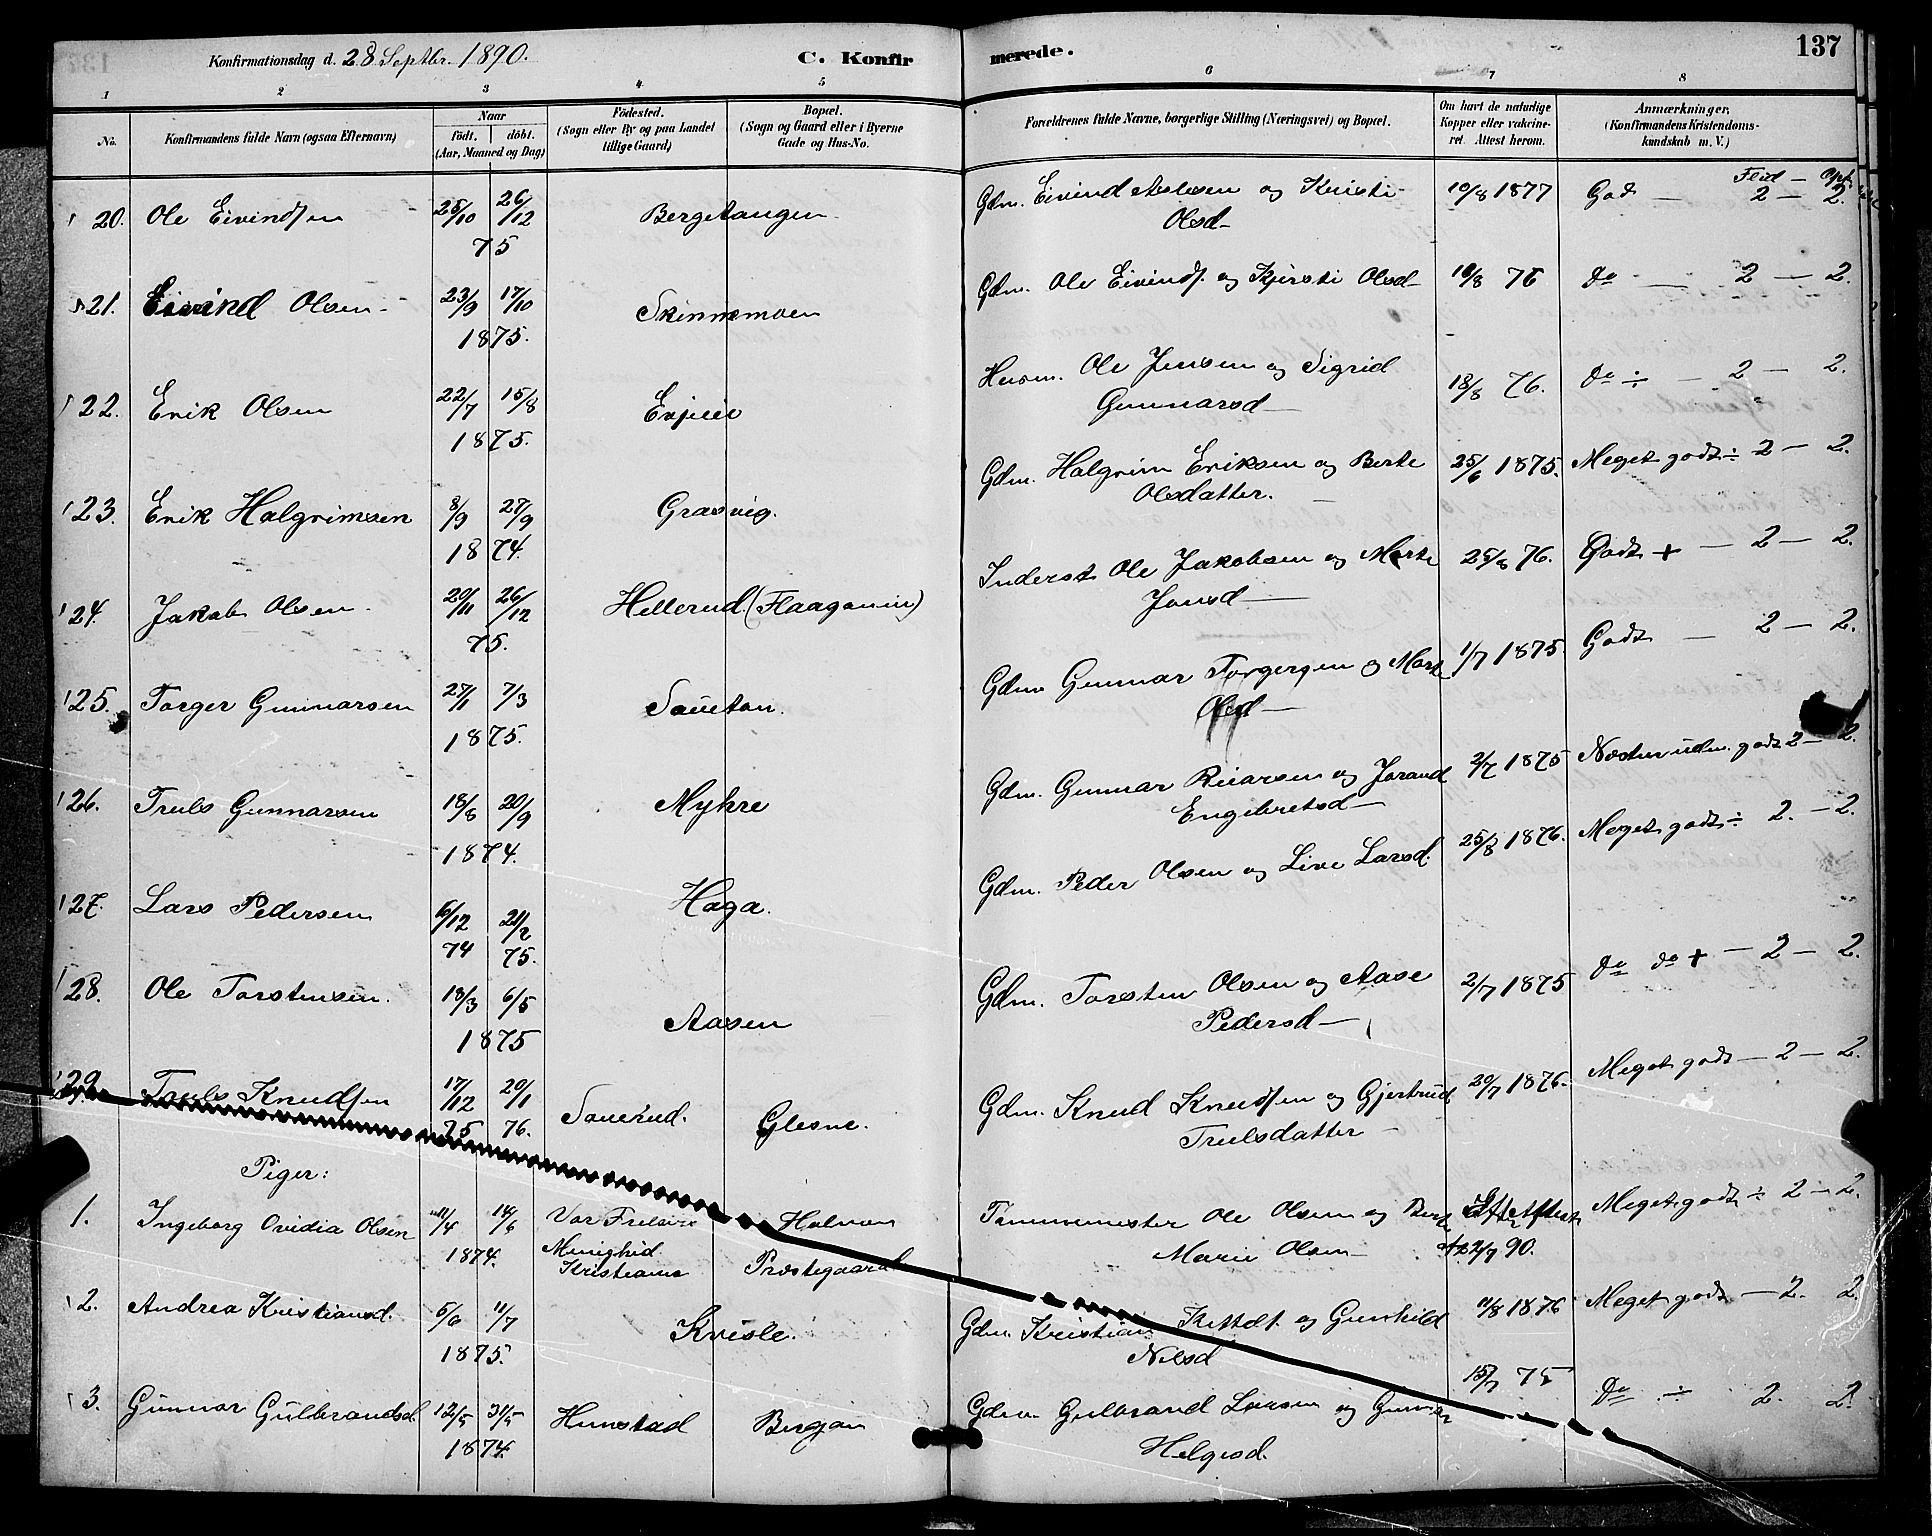 Konfirmationsdag d. 28 Septbr. 1890.
C. Konfirmerede.
137
1 2 3 4 5 6 7 8
No.
Konfirmandens fulde Navn (ogsaa Efternavn)
Naar
födt. döbt.
(Aar, Maaned og Dag)
Födested.
(Sogn eller By og paa Landet
tillige Gaard)
Bopæl.
(Sogn og Gaard eller i Byerne
Gade og Hus-No.
Forældrenes fulde Navne, borgerlige Stilling (Næringsvei) og Bopæl.
Om havt de naturlige
Kopper eller vakcine-
ret. Attest herom.
Anmærkninger,
(Konfirmandens Kristendoms-
kundskab m. V.)
Flid — Opf.
20. Ole Eivindsen 25/10 26/12 Bergetangen Gdm. Eivind Aslesen og Kristi 10/8 1877 Godt — 2 — 2.
75 Olsd
21. Eivind Olsen 23/9 17/10 Skinnemoen Gdm. Ole Eivinds. og Kjersti Olsd 10/8 76 do — 2 — 2.
1875.
22. Erik Olsen 22/7 15/8 Husm. Ole Jensen og Sigrid 18/8 76. do ÷ — 2 — 2.
1875. Gunnarsd
23. Erik Halgrimsen 8/9 27/9 Grasvig. Gdm. Halgrim Eriksen og Berte 25/6 1875. Meget godt ÷ 2 — 2.
1874. Olsdatter.
24. Jakob Olsen 20/11 26/12 Hellerud. Inderst Ole Jakobsen og Marte 25/8 76. Godt + — 2 — 2.
75. Jonsd
25. Torger Gunnarsen 27/1 7/3 Gdm Gunnar Torgersen og Mart 1/7 1875. Godt — 2 — 2.
1875. Olsd
26. Truls Gunnarsen 18/8 20/9 Myhre Gdm. Gunnar Reiarsen og Jorand 2/7 1875 Næsten udm. godt 2 — 2.
1874. Engebretsd
27. Lars Pedersen 6/12 21/2 Haga. Gdm. Peder Olsen og Live Larsd. 25/8 1876. Meget godt ÷ 2. — 2.
74 75.
28. Ole Torstensen 18/3 6/5 Aasen Gdm. Torsten Olsen og Aase 2/7 1875 do do + — 2 — 2.
1875 Pedersd
29. Truls Knudsen 17/12 20/1 Glesne. Gdm. Knud Knudsen og Gjertrud 20/7 1876. Meget godt — 2 — 2.
75 76. Trulsdatter
Piger:
1. Ingeborg Ovidia Olsen 11/4 14/6 Vor Frelsers Holmen Ole Olsen og Meget godt ÷ 2 — 2.
1874. Menighed Kristiania Præstegaard Marie Olsen 90.
2. Andrea Kristiansd. 6/6 11/7 Kvisle. Gdm. Kristian Kittels. og Gunhild 11/8 1876 Meget godt — 2. 2.
1875. Nilsd
3. Gunnor Gulbrandsd. 12/5 31/5 Gdm. Gulbrand Larsen og 15/7 75 Do ÷ 2. 2.
1874. Helgesd.